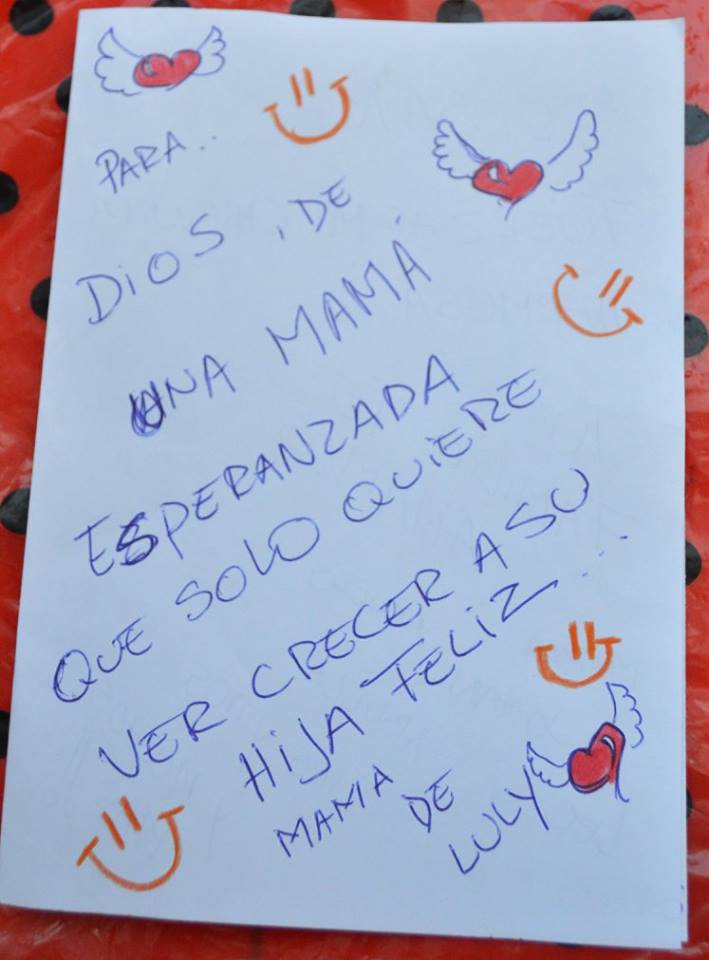 PARA..
DIOS, DE
UNA MAMÁ
ESPERANZADA
QUE SOLO QUIERE
VER CRECER A SU
HIJA FELIZ...
MAMA
DE
LULY